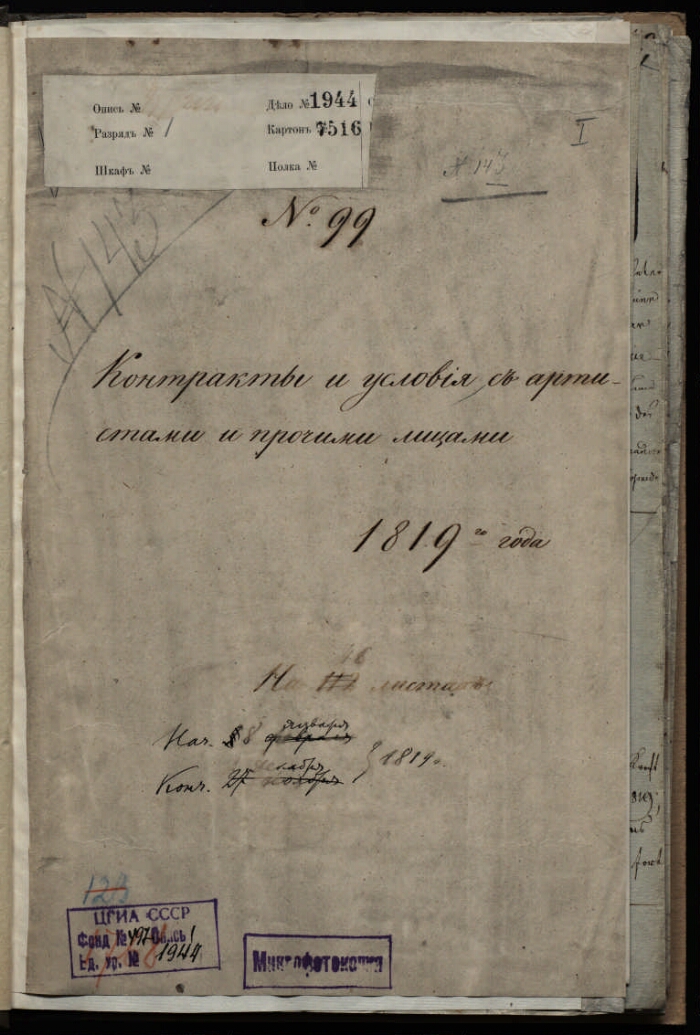 Опись №
Дѣло № 1944
Разрядъ № 1
Картонъ № 7516
Шкафъ №
Полка №
I
№ 143
№ 99
№ 143
Контракты и условія съ арти-
стами и прочими лицами
1819го года
На листахъ
января
Нач. 8 февраля
декабря
Конч. ноября
1819 г.
123
ЦГИА СССР
Фонд № 497 Опись 1
Ед. хр. № 1944
Микрофотокопия